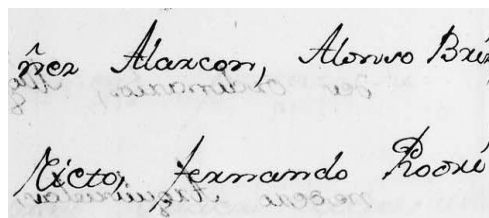 ñez Alarcon, Alonso Brí
Nieto, Fernando Rodrí